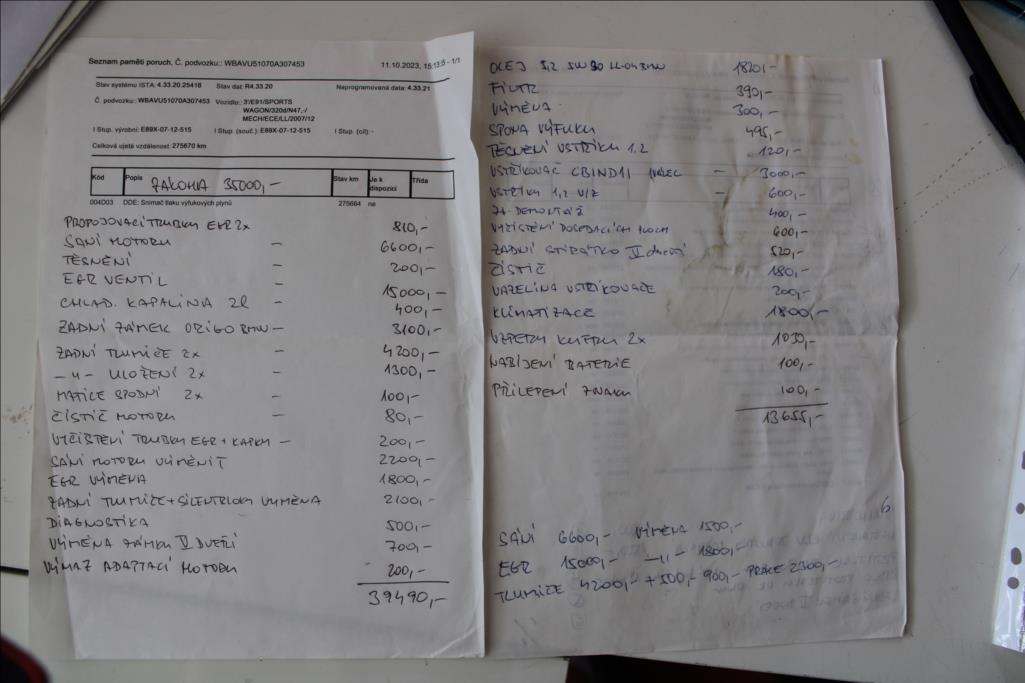 Seznam paměti poruch, Č. podvozku:: WBAVU51070A307453
11.10.2023, 15:13:5 - 1/1
Stav systému ISTA: 4.33.20.25418 Stav dat: R4.33.20 Naprogramovaná data: 4.33.21
Č. podvozku: WBAVU51070A307453 Vozidlo: 3'/E91/SPORTS
WAGON/320d/N47,-/
MECH/ECE/LL/2007/12
I Stup. výrobní: E89X-07-12-515 I Stup. (souč.): E89X-07-12-515 I Stup. (cíl): -
Celková ujetá vzdálenost: 275670 km
Kód Popis ZÁLOHA 35000,- Stav km Je k dispozici Třída
004D03 DDE: Snímač tlaku výfukových plynů 275664 ne
PROPOJOVACÍ TRUBKY EGR 2x 810,-
SÁNÍ MOTORU - 6600,-
TĚSNĚNÍ - 200,-
EGR VENTIL - 15000,-
CHLAD. KAPALINA 2l - 400,-
ZADNÍ ZÁMEK ORIGO BMW - 3100,-
ZADNÍ TLUMIČE 2x - 4200,-
-"- ULOŽENÍ 2x - 1300,-
MATICE SPODNÍ 2x - 100,-
ČISTIČ MOTORU - 80,-
VYČIŠTĚNÍ TRUBKY EGR + KAPKY - 200,-
SÁNÍ MOTORU VÝMĚNIT 2200,-
EGR VÝMĚNA 1800,-
ZADNÍ TLUMIČE + SILENTBLOKY VÝMĚNA 2100,-
DIAGNOSTIKA 500,-
VÝMĚNA ZÁMKU V DVEŘÍ 700,-
VÝMAZ ADAPTACÍ MOTORU 200,-
39490,-
OLEJ 5,2 5W30 LL-04 BMW 1820,-
FILTR 390,-
VÝMĚNA 300,-
SPONA VÝFUKU 495,-
TĚSNĚNÍ VSTŘIKU 1.2 120,-
VSTŘIKOVAČ - 3000,-
VSTŘIKY 1,2 V/Z - 600,-
DEMONTÁŽ 400,-
VYČIŠTĚNÍ DOSEDACÍCH PLOCH 600,-
ZADNÍ STÍRÁTKO 520,-
ČISTIČ 180,-
VAZELÍNA VSTŘIKOVAČE 200,-
KLIMATIZACE 1800,-
VZPĚRY KUFRU 2x 1030,-
NABÍJENÍ BATERIE 100,-
PŘILEPENÍ ZNAKU 100,-
13655,-
SÁNÍ 6600,- VÝMĚNA 1500,-
EGR 15000,- -"- 1800,-
TLUMIČE 4200,- + 500,- 900,- PRÁCE 2300,-